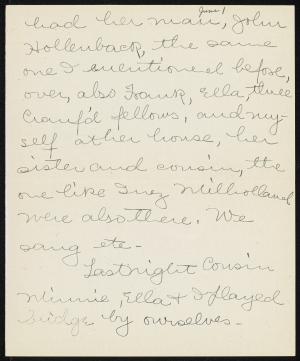 June 1
had her man, John
Hollenback, the same
one I mentioned before,
over, also Frank, Ella, three
Cranf'd fellows, and my-
self at her house, her
sister and cousin, the
one like Inez Milholland
were also there. We
sang etc-
Last night Cousin
Minnie, Ella & I played
Bridge by ourselves-